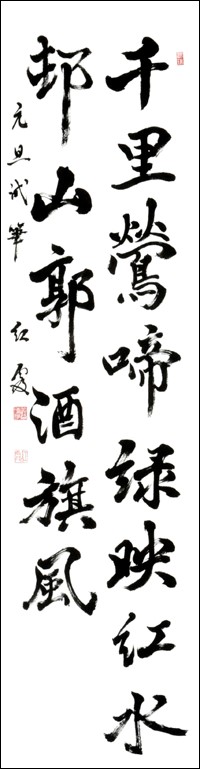 千里鶯啼緑映紅水
邨山郭酒旗風
元旦試筆 紅霞